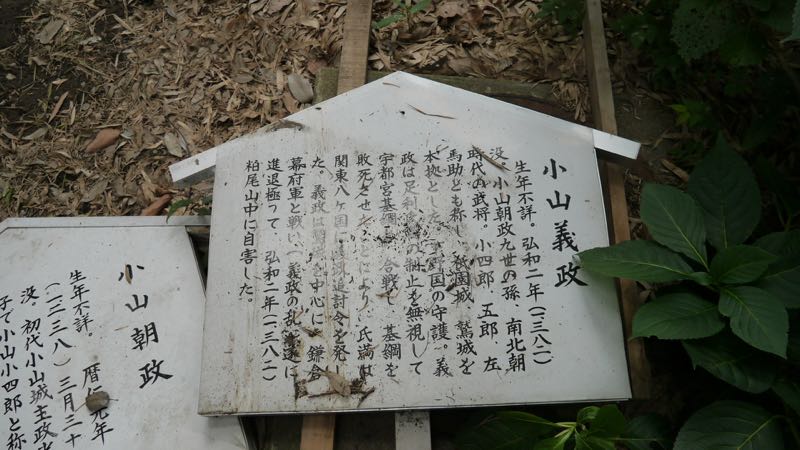 小山義政
生年不詳。弘和二年(一三八二)
没。小山朝政九世の孫 南北朝
時代の武将。小四郎 五郎、左
馬助とも称し 祇園城 鷲城を
本拠とした 野国の守護。義
政は足利 の制止を無視して
宇都宮基綱 合戦 基綱を
敗死させ とにより、氏満は
関東八ヶ国 追討令を発し
た。義政は を中心に 鎌倉
幕府軍と戦い(義政の乱 遂に
進退極って 弘和二年(一三八二)
粕尾山中に自害した。
小山朝政
生年不詳。 暦仁元年
(一二三八) 三月三十
没。初代小山城主政光
子で小山小四郎と称